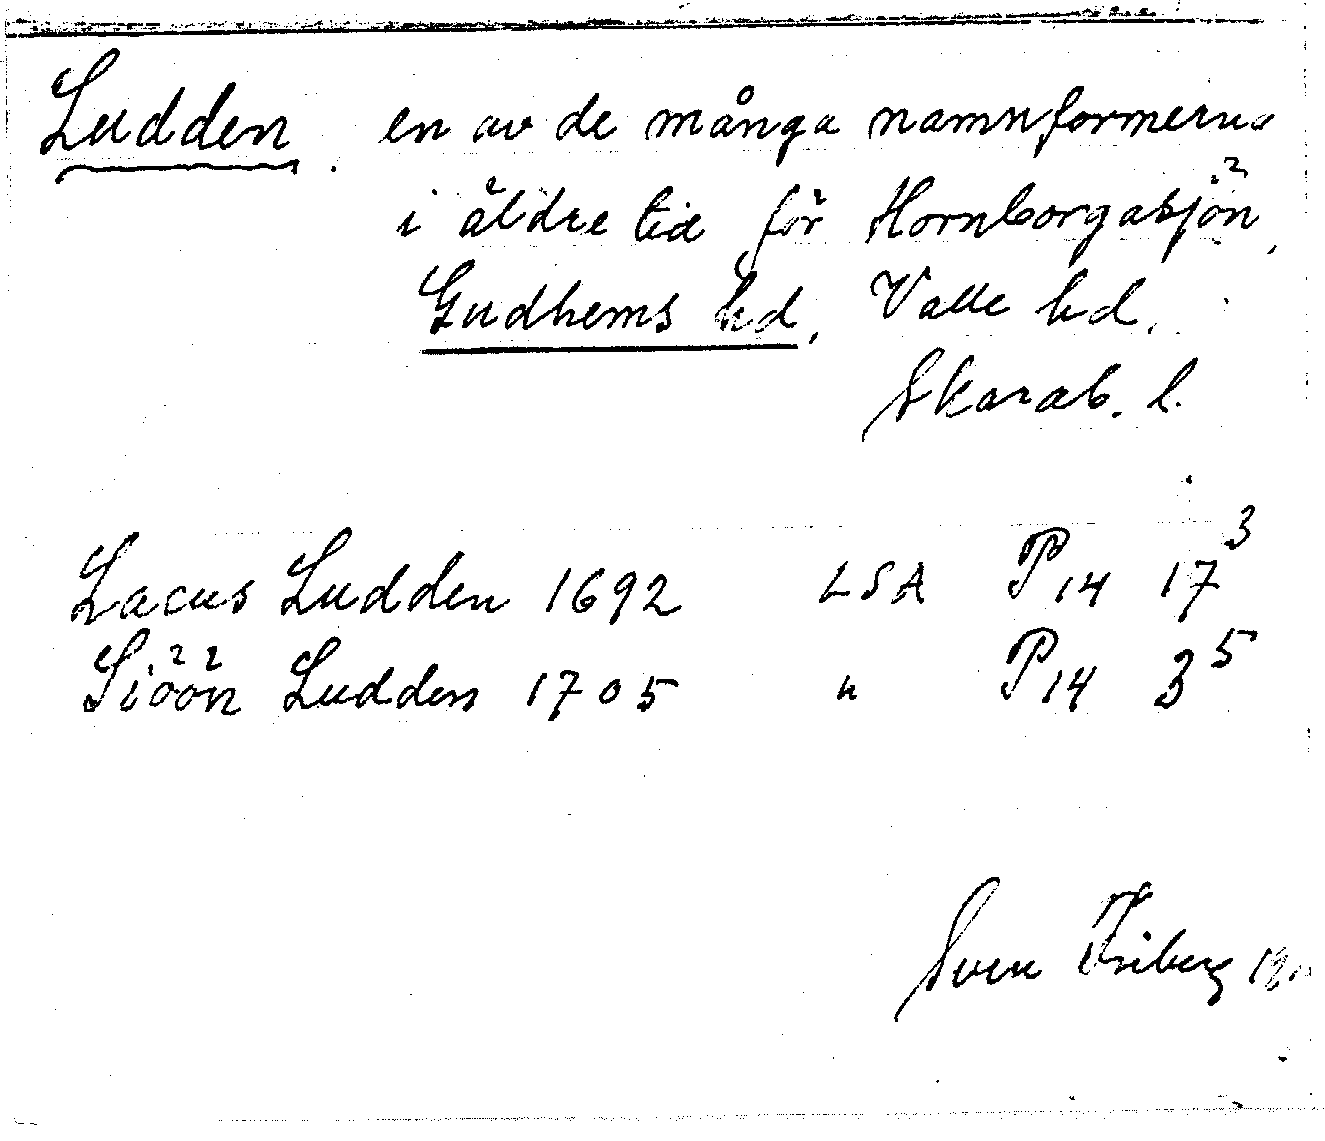 Ludden. en av de många namnformerna
i äldre tid för Hornborgasjön,
Gudhems hd, Valle hd,
Skarab. l.
Lacus Ludden 1692 LSA P14 17³
Siöön Ludden 1705 " P14 3⁵
Sven Friberg